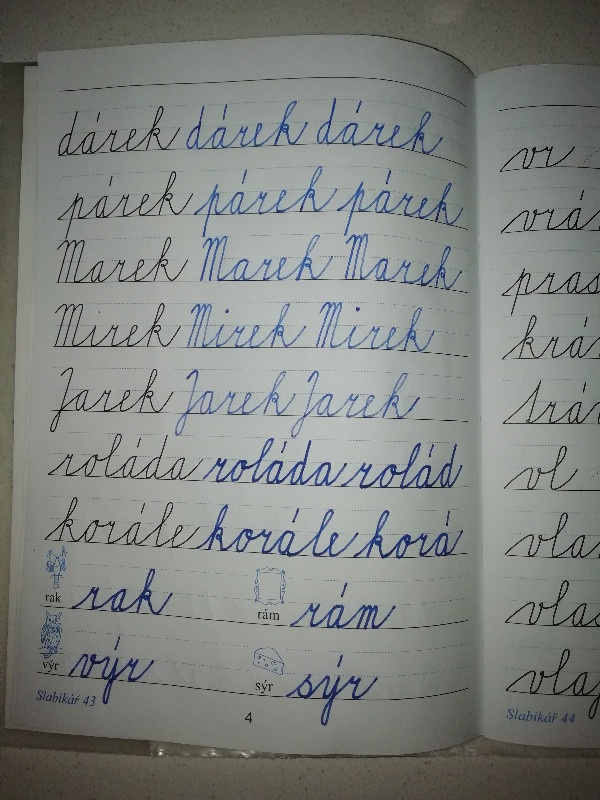 dárek dárek dárek
párek párek párek
Marek Marek Marek
Mirek Mirek Mirek
Jarek Jarek Jarek
roláda roláda rolád
korále korále korá
rak rak
rám rám
výr výr
sýr sýr
Slabikář 43
4
vr
vrá
pras
krá
trá
vl
vla
vlas
vlaj
Slabikář 44